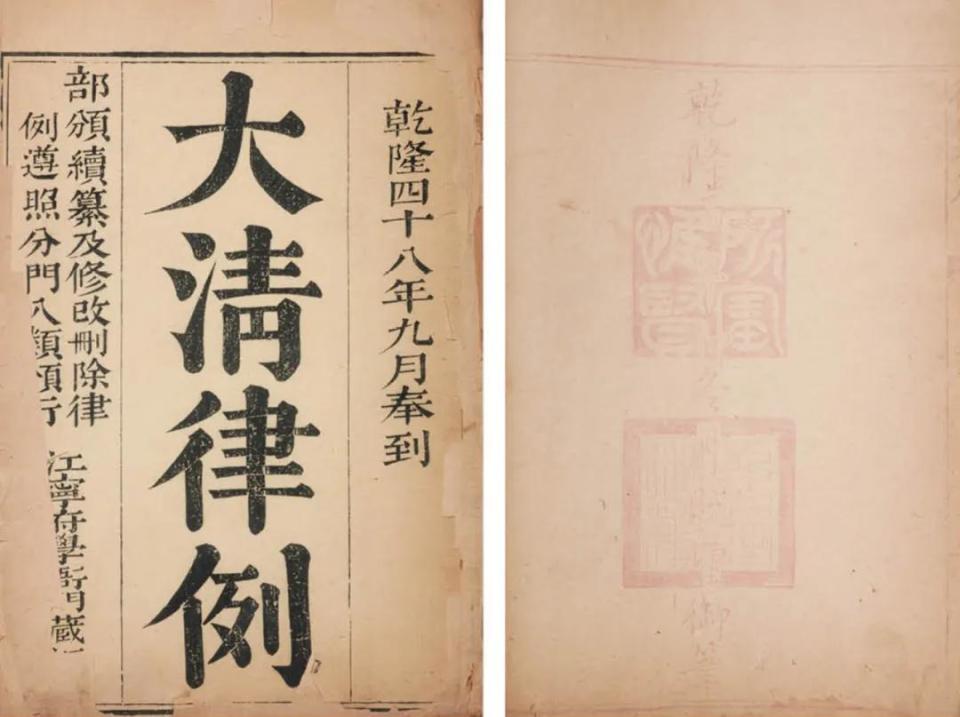 乾隆四十八年九月奉到
大清律例
部頒續纂及修改刪除律
例遵照分門八類頒行
江寧府學衙門藏
乾隆
御筆